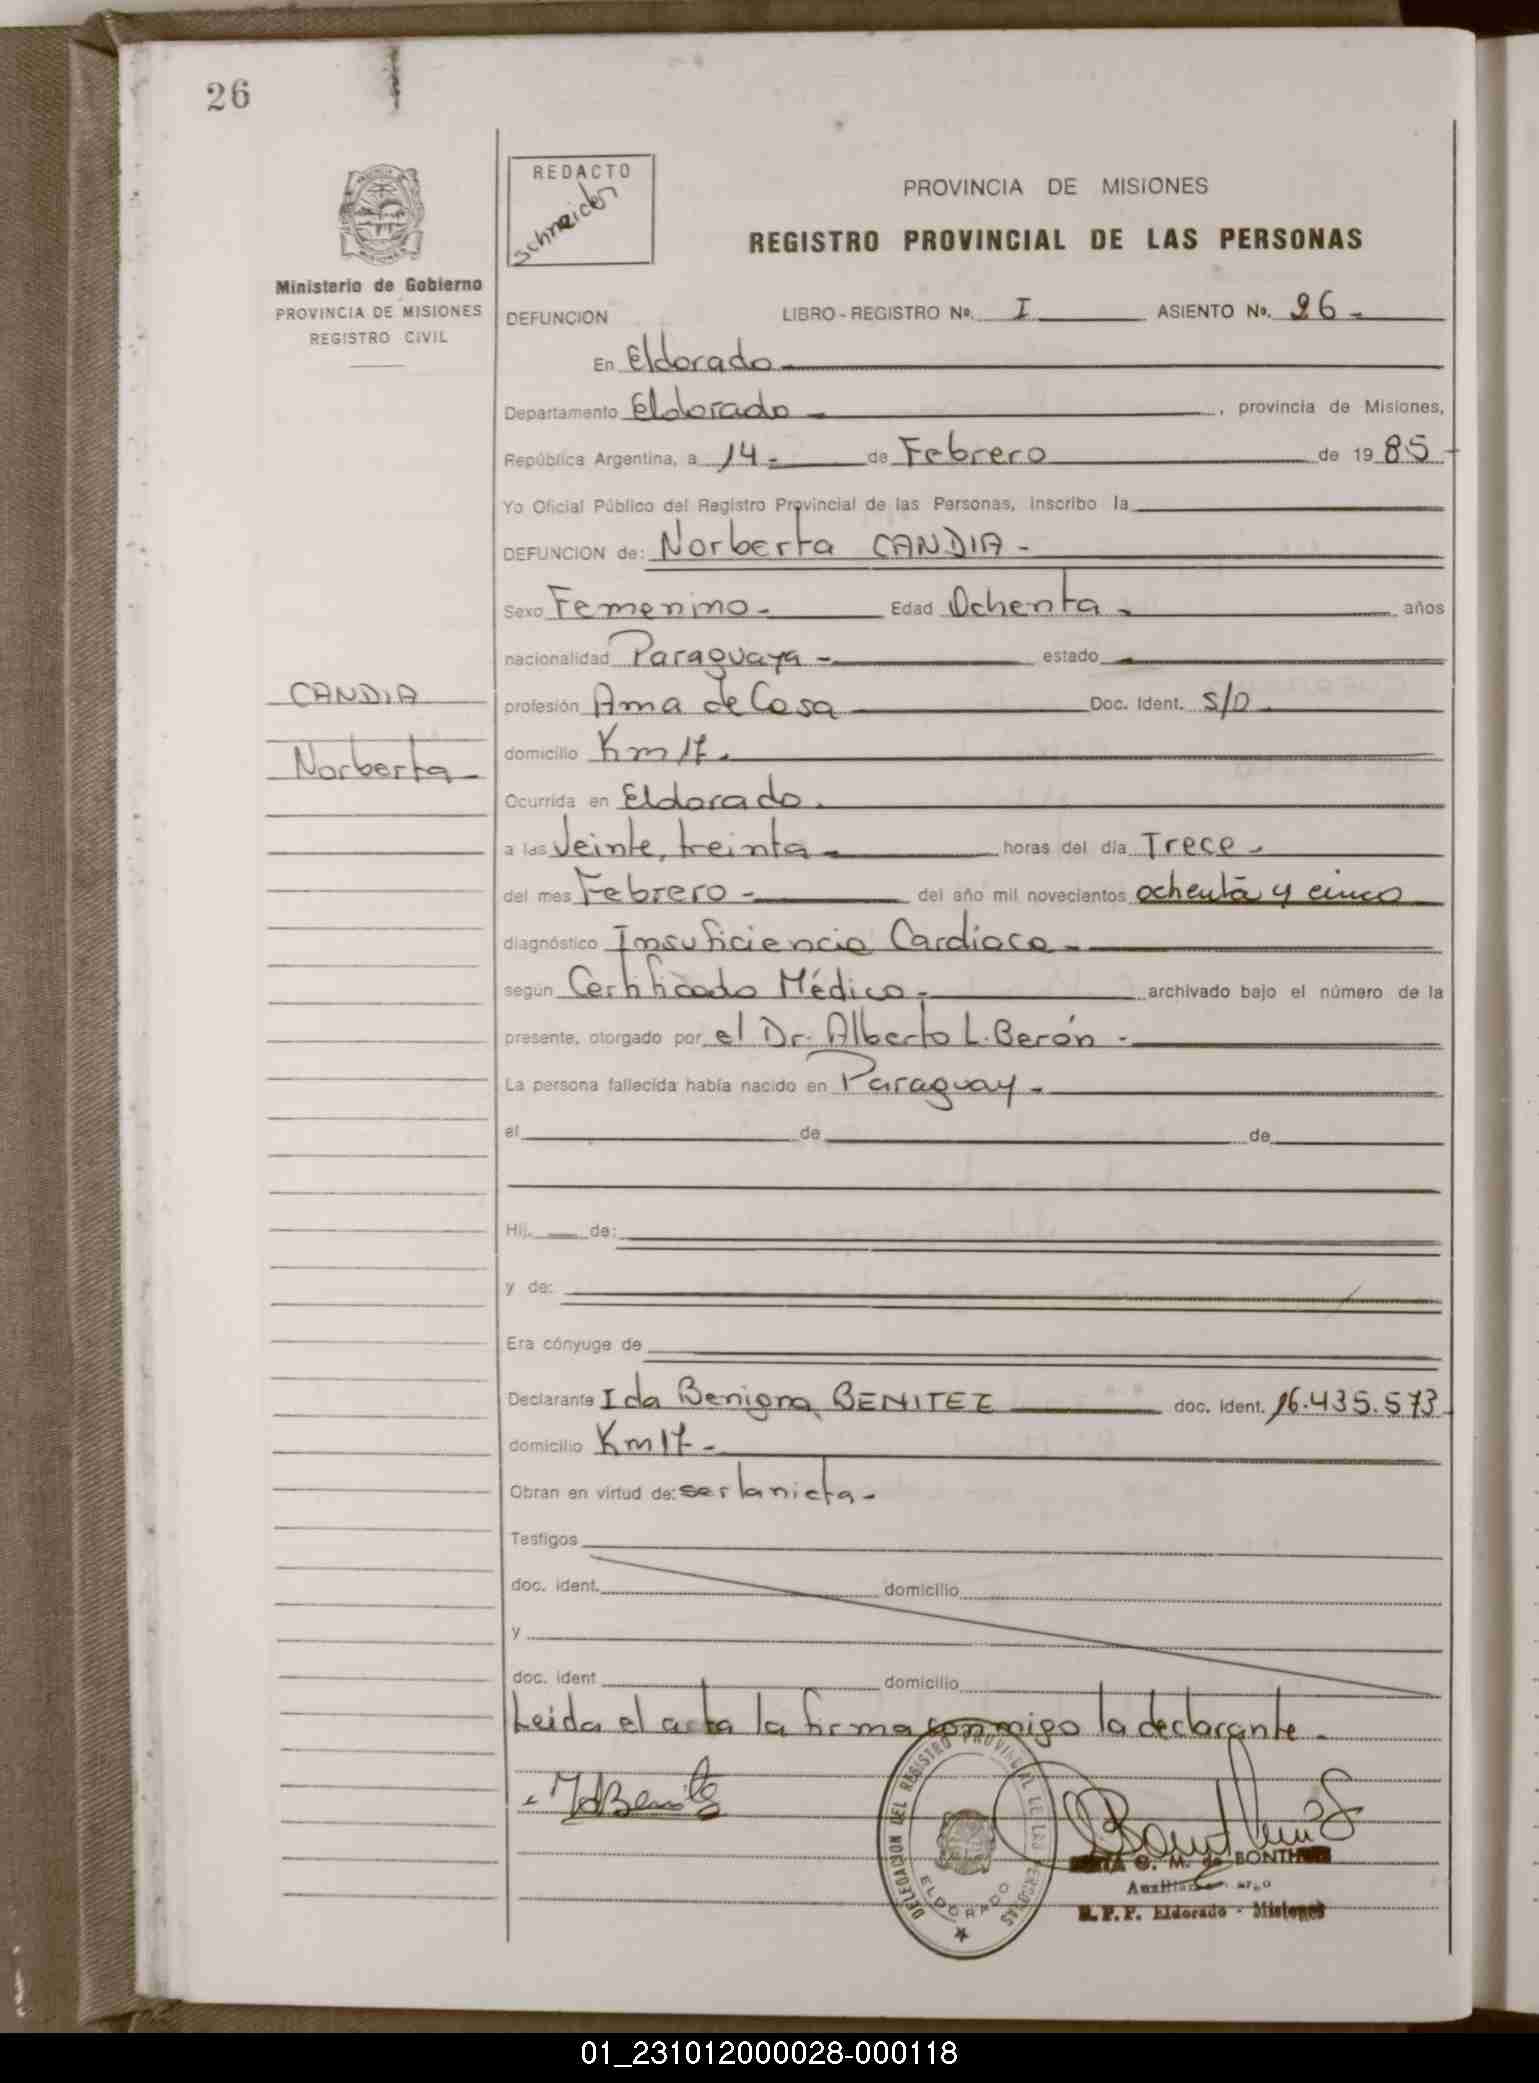 26
REDACTO
Schneider
PROVINCIA DE MISIONES
REGISTRO PROVINCIAL DE LAS PERSONAS
Ministerio de Gobierno
PROVINCIA DE MISIONES
REGISTRO CIVIL
DEFUNCION LIBRO - REGISTRO No. I ASIENTO No. 26 -
En Eldorado
Departamento Eldorado - , provincia de Misiones,
República Argentina, a 14 - de Febrero de 19 85
Yo Oficial Público del Registro Provincial de las Personas, inscribo la
DEFUNCION de: Norberta CANDIA -
Sexo Femenino - Edad Ochenta - años
nacionalidad Paraguaya - estado
CANDIA
profesión Ama de Casa Doc. Ident. S/D
Norberta -
domicilio Km 17 -
Ocurrida en Eldorado.
a las Veinte, treinta - horas del día Trece -
del mes Febrero - del año mil novecientos ochenta y cinco
diagnóstico Insuficiencia Cardiaca -
según Certificado Médico - archivado bajo el número de la
presente, otorgado por el Dr. Alberto L. Berón -
La persona fallecida había nacido en Paraguay -
el de de
Hij de:
y de:
Era cónyuge de
Declarante Ida Benigna BENITEZ doc. Ident. 16.435.573
domicilio Km 17 -
Obran en virtud de: ser la nieta -
Testigos
doc. ident. domicilio
y
doc. ident domicilio
Leida el acta la firma conmigo la declarante -
DELEGACION DEL REGISTRO PROVINCIAL DE LAS PERSONAS
ELDORADO
G. M. de BONTH
R. P. P. Eldorado - Misiones
01_231012000028-000118